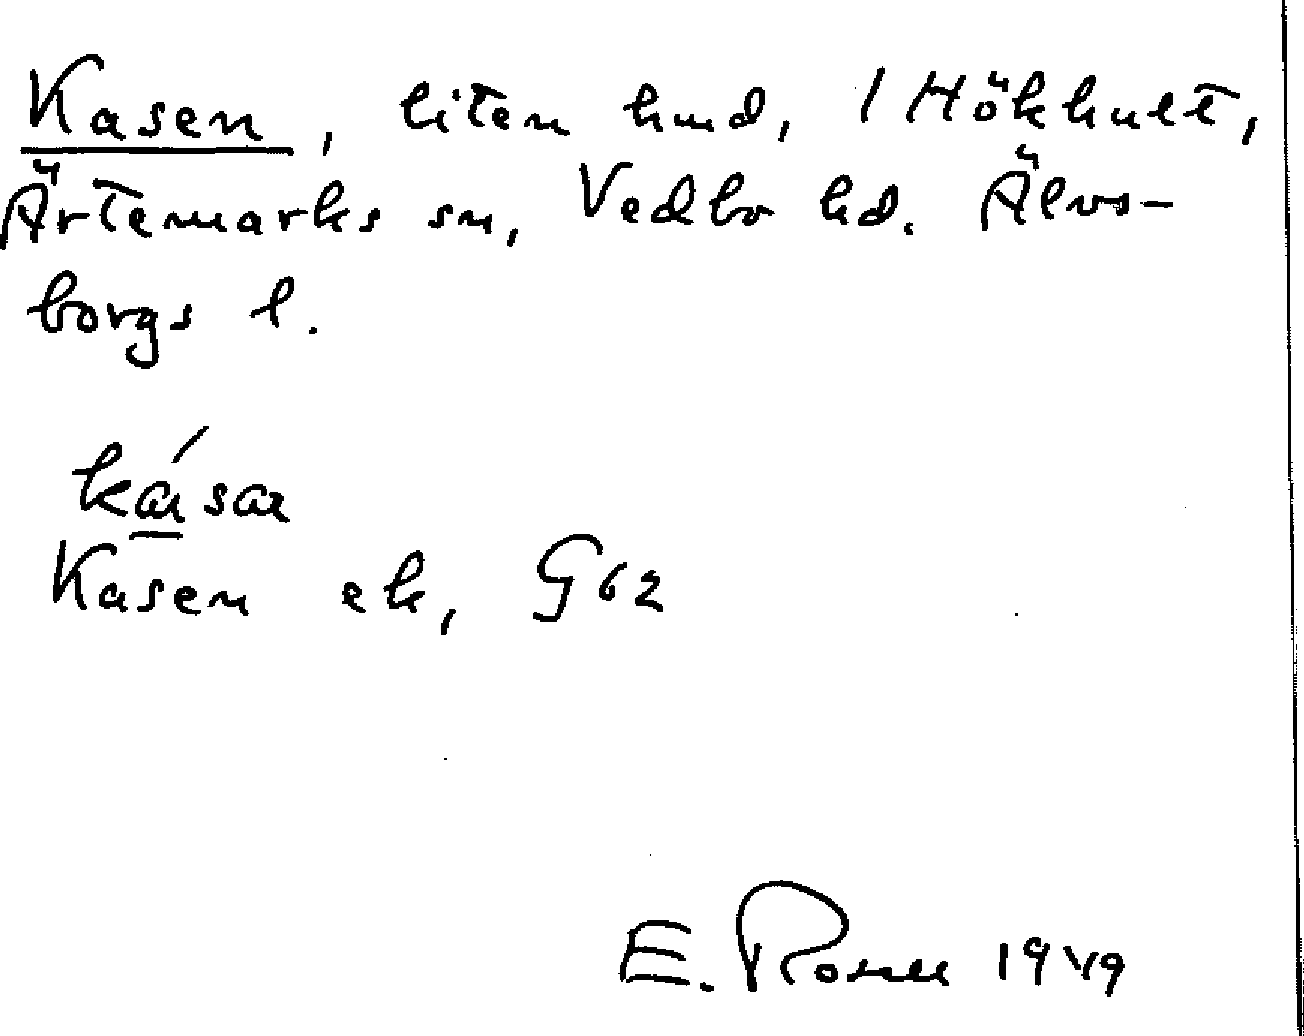 Kasen, liten hmd, 1 Hökhult,
Ärtemarks sn, Vedbo hd. Älvs-
borgs l.
ká̲saɪ
Kasen ek, G62
E. Rosell 1949